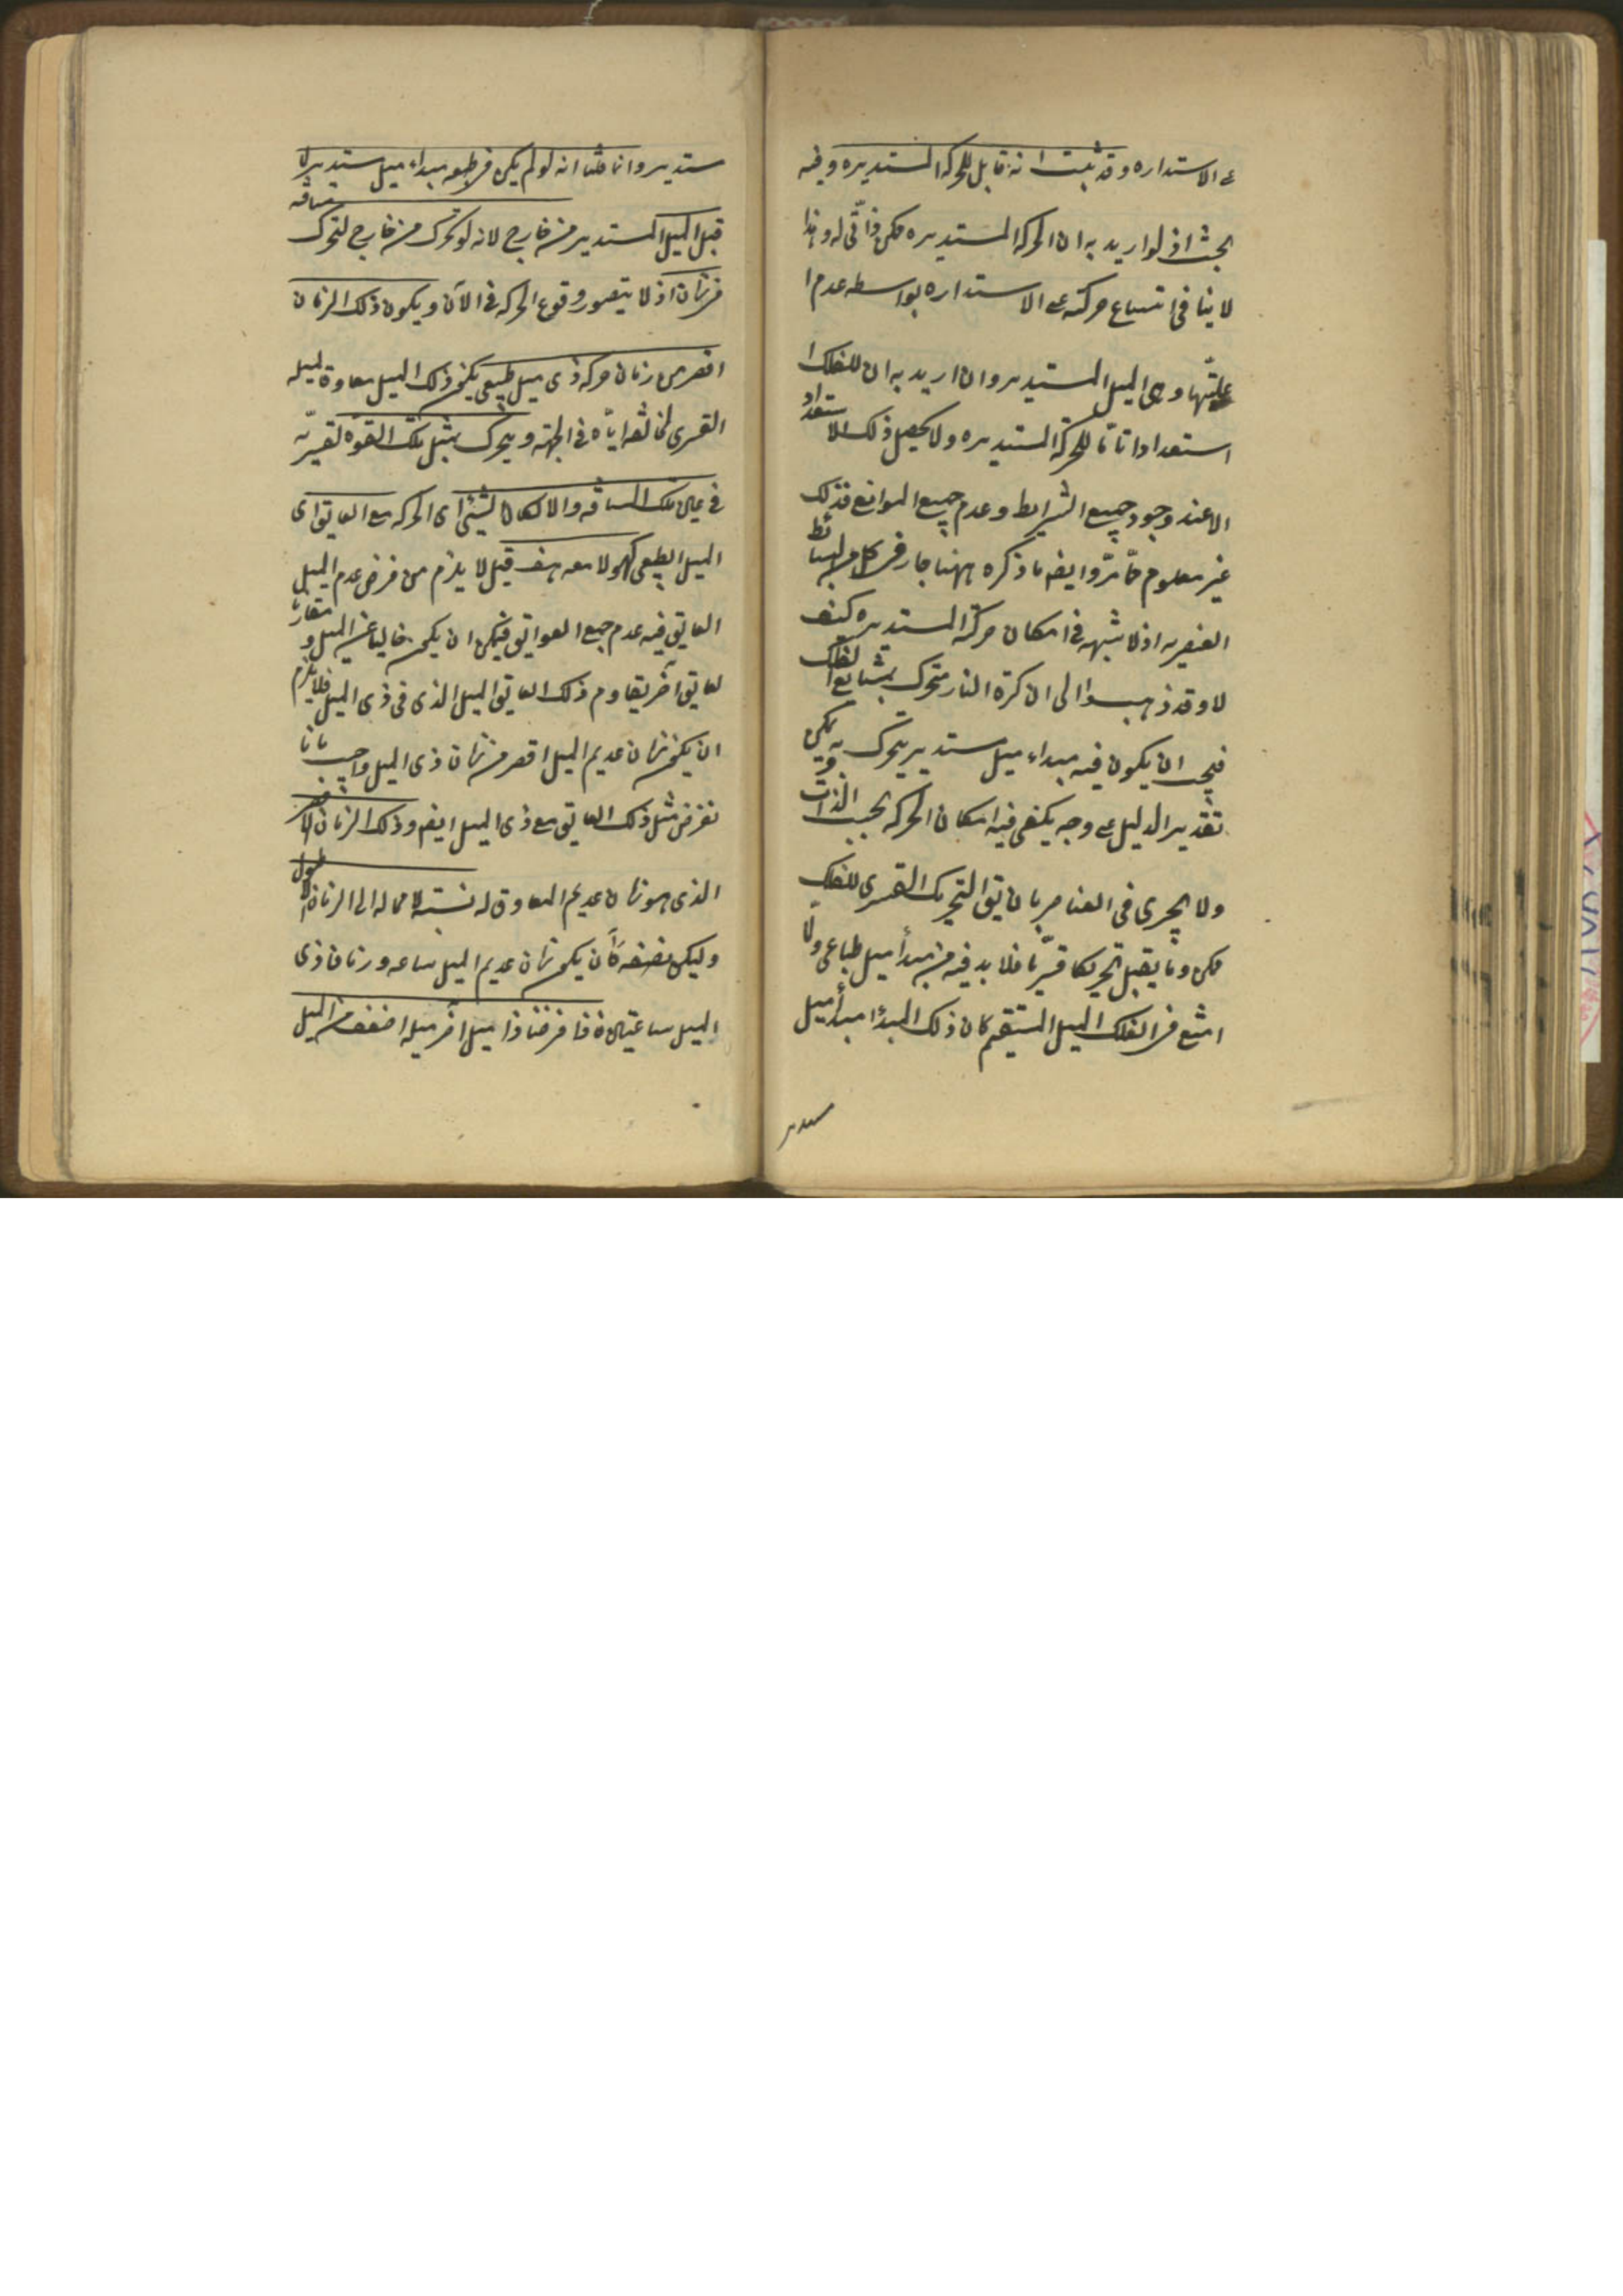 ع الاستداره وقد ثبت انه قابل للحركه المستديره وفيه
بحث اذ لو اريد به ان الحركه المستديره ممكن ذاتى له وهذا
لا ينافى امتناع حركته ع الاستداره بواسطه عدم
علتها وهى الميل المستدير وان اريد به ان للفلك
استعدادا تاما للحركة المستديره ولا يحصل ذلك الاستعداد
الا عند وجود جميع الشرايط وعدم جميع الموانع فذلك
غير معلوم مما مر وايضا ما ذكره ههنا جار فى كل من البسائط
العنصريه اذ لا شبهه فى امكان حركة المستديره كيف
لا وقد ذهبوا الى ان كرة النار متحرك بمشايع الفلك
فيجب ان يكون فيه مبداء ميل مستدير يتحرك به ويمكن
تقدير الدليل ع وجه يكفى فيه امكان الحركه بحسب الذات
ولا يجرى فى العناصر بان يق التحريك القسرى للفلك
ممكن وما يقبل تحريكا قسريا فلا بد فيه من مبدأ ميل طباعى ولما
امتنع فى الفلك الميل المستقيم كان ذلك المبدأ مبدأ ميل
مستدير
مستدير وانما قلنا انه لو لم يكن فى طبعه مبداء ميل مستدير لما
قبل الميل المستدير من خارج لانه لو تحرك من خارج لتحرك مسافه
فى زمان اذ لا يتصور وقوع الحركه فى الآن ويكون ذلك الزمان
اقصر من زمان حركه ذى ميل طبيعى يكون ذلك الميل معاوقا لميله
القسرى لمخالفه اياه فى الجهة ويتحرك بمثل تلك القوه القسريه
فى عين تلك المسافه والا لكان الشئ اى الحركه مع العايق اى
الميل الطبعى كهو لا معه هف قيل لا يلزم من فرض عدم الميل
العايق فيه عدم جميع العوايق فيمكن ان يكون خاليا عن الميل ومقارنا
لعايق آخر يقاوم ذلك العايق الميل الذى فى ذى الميل فلا يلزم
ان يكون زمان عديم الميل اقصر من زمان ذى الميل واجيب بانا
نفرض مثل ذلك العايق مع ذى الميل ايضا وذلك الزمان الاقصر
الذى هو زمان عديم المعاوق له نسبة لا محاله الى الزمان الاطول
وليكن نصفه كأن يكون زمان عديم الميل ساعه وزمان ذى
الميل ساعتين فاذا فرضنا ذا ميل آخر ميله اضعف من الميل